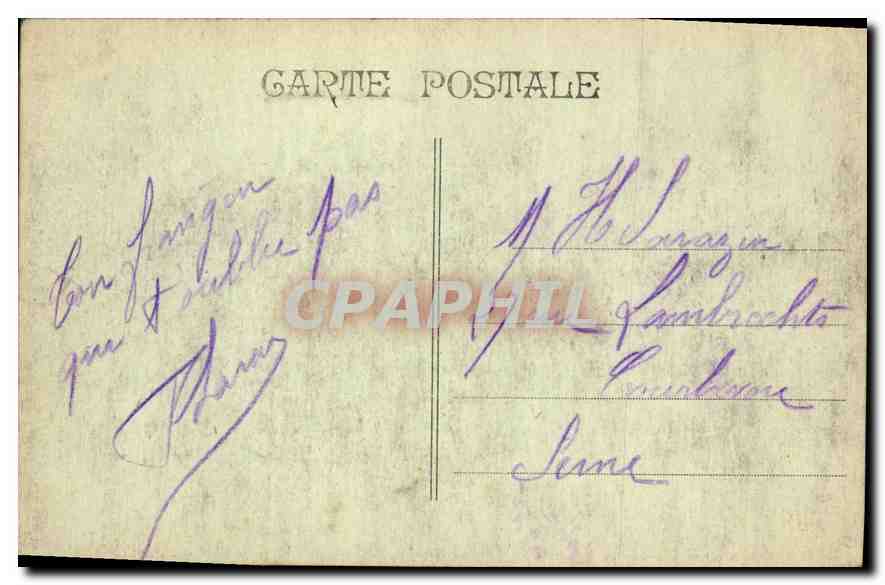 CARTE POSTALE
Ton frangin
qui t'oublie pas
M H Sarazin
Lambrechts
Courbevoie
Seine
CPAPHIL